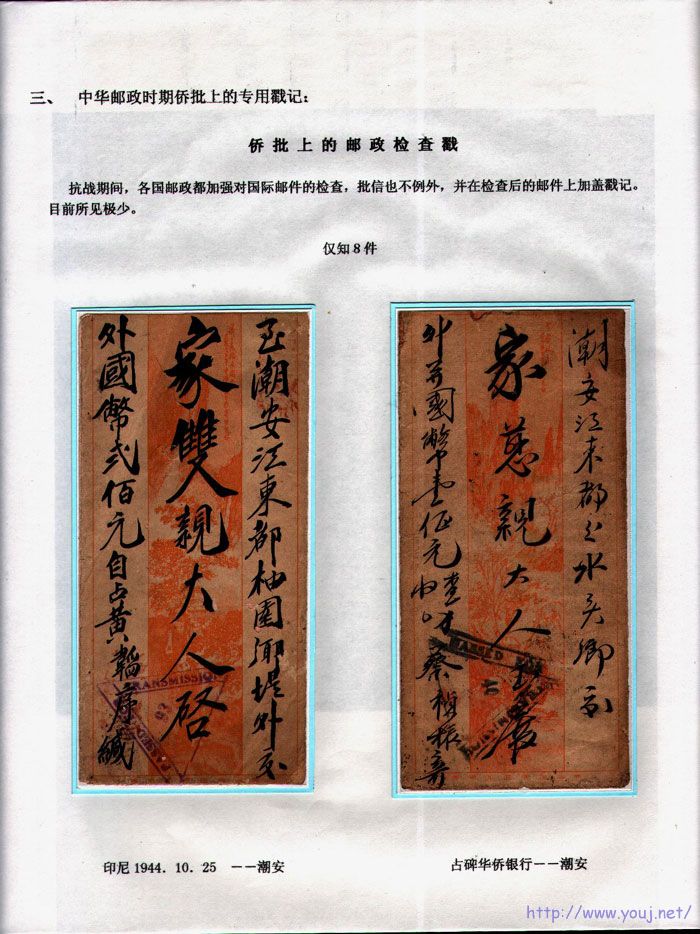 三、 中华邮政时期侨批上的专用戳记:
侨批上的邮政检查戳
抗战期间，各国邮政都加强对国际邮件的检查，批信也不例外，并在检查后的邮件上加盖戳记。
目前所见极少。
仅知8件
至潮安江東都柚園鄉堤外交
家雙親大人啓
外國幣弍佰元自占黃韜庠緘
TRANSMISSION
93
潮安江東都上水吳鄉交
家慈親大人
PASSED FOR
印尼1944．10．25 ——潮安
占碑华侨银行——潮安
http://www.youj.net/